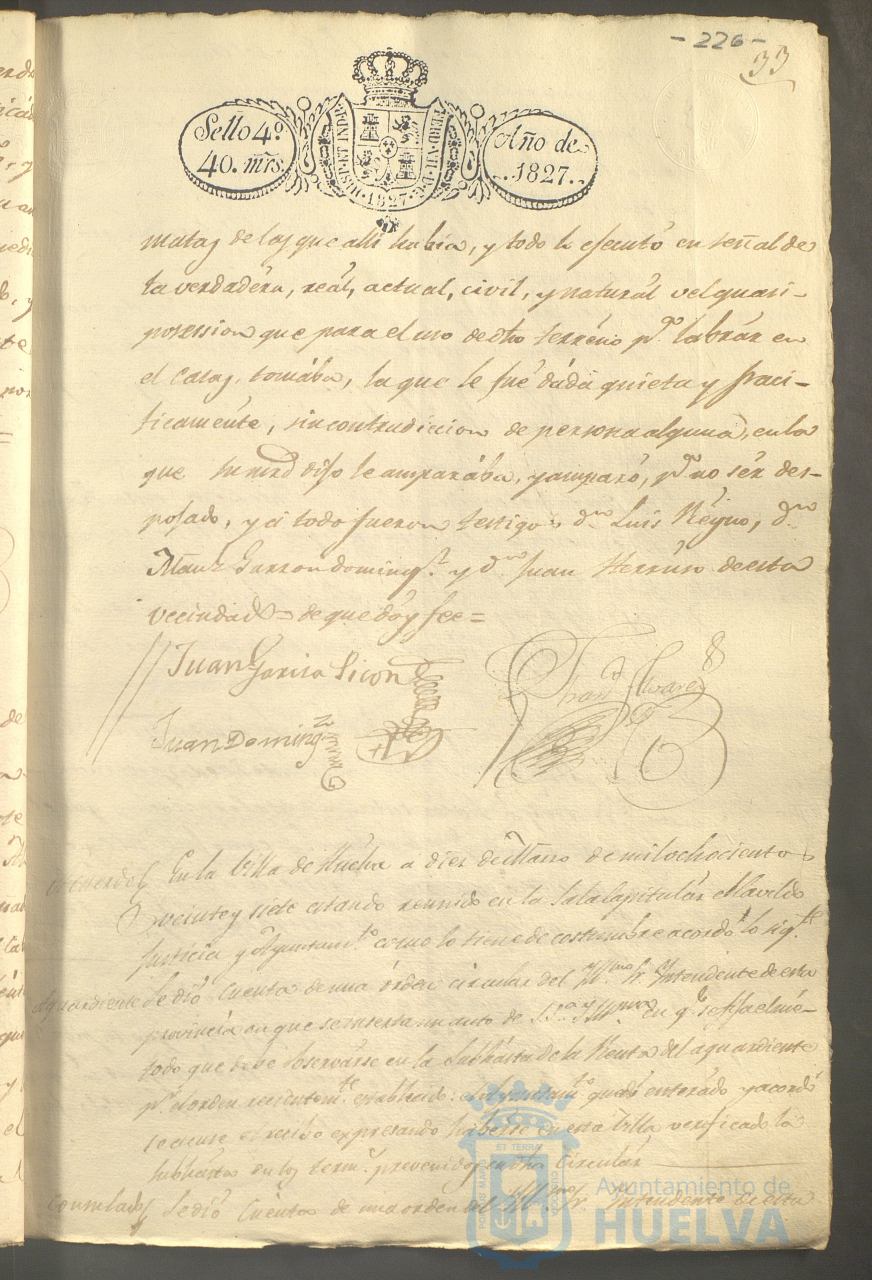 -226-
33
Sello 4º
40. mrs.
HISP. ET IND. R.
FERD. VII. D. G.
1827
Año de
1827.
matas de las que alli habia, y todo lo ejecutó en señal de
la verdadera, reál, actual, civil, y naturál vel quasi-
posession que para el uso de dho terréno pª. labrár en
el casas, tomába, la que le fué dáda quieta y paci-
ficamente, sin contradiccion de persona alguna, en la
que su mrd dijo le amparába, y amparó, pª no sér des-
pojado, y á todo fueron testigos dn Luis Reyno, dn
Manl Garzon Domingz. y dn Juan Herréro de esta
vecindad = de que dóy fee =
Juan García Picon
Juan Domingz
Alvarez
Acuerdo
En la Villa de Huélva a diez de Marzo de mil ochocientos
veinte y siete estando reunido en la Sala Capitulár el Cavildo
Justicia y Ayuntamto. como lo tiene de costumbre acordó lo sigte.
Aguardiente
Se dió Cuenta de una órden circulár del Yllmo Sr. Yntendente de esta
provincia en que se inserta un auto de en qe se fija el mé-
todo que debe observárse en la subhásta de la Renta del aguardiente
pr. el orden recientemte. establecido: el Ayuntamto quedó enterádo y acordó
se acuse el recibo expresando habérse en esta Villa verificado la
subhásta en los térms. prevenidos en dha Circulár
Se dió Cuenta de una orden del Yllmo Sr. Yntendente de esta
ET TERRAE
PORTUS MARIS
CUSTODIO
Ayuntamiento de
HUELVA